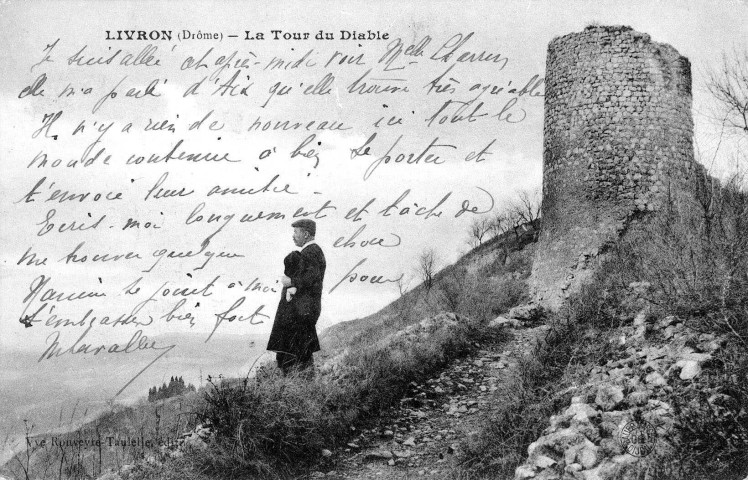 LIVRON (Drôme) – La Tour du Diable
Je suis allé cet après-midi voir Melle
elle m'a parlé d'Aix qu'elle trouve très agréable
Il n'y a rien de nouveau ici tout le
monde continue à bien se porter et
t'envoie leur amitié -
Ecris-moi longuement et tâche de
me trouver quelque chose
se joint à moi pour
t'embrasser bien fort
Vve Ronveyre-Taulelle, édit.